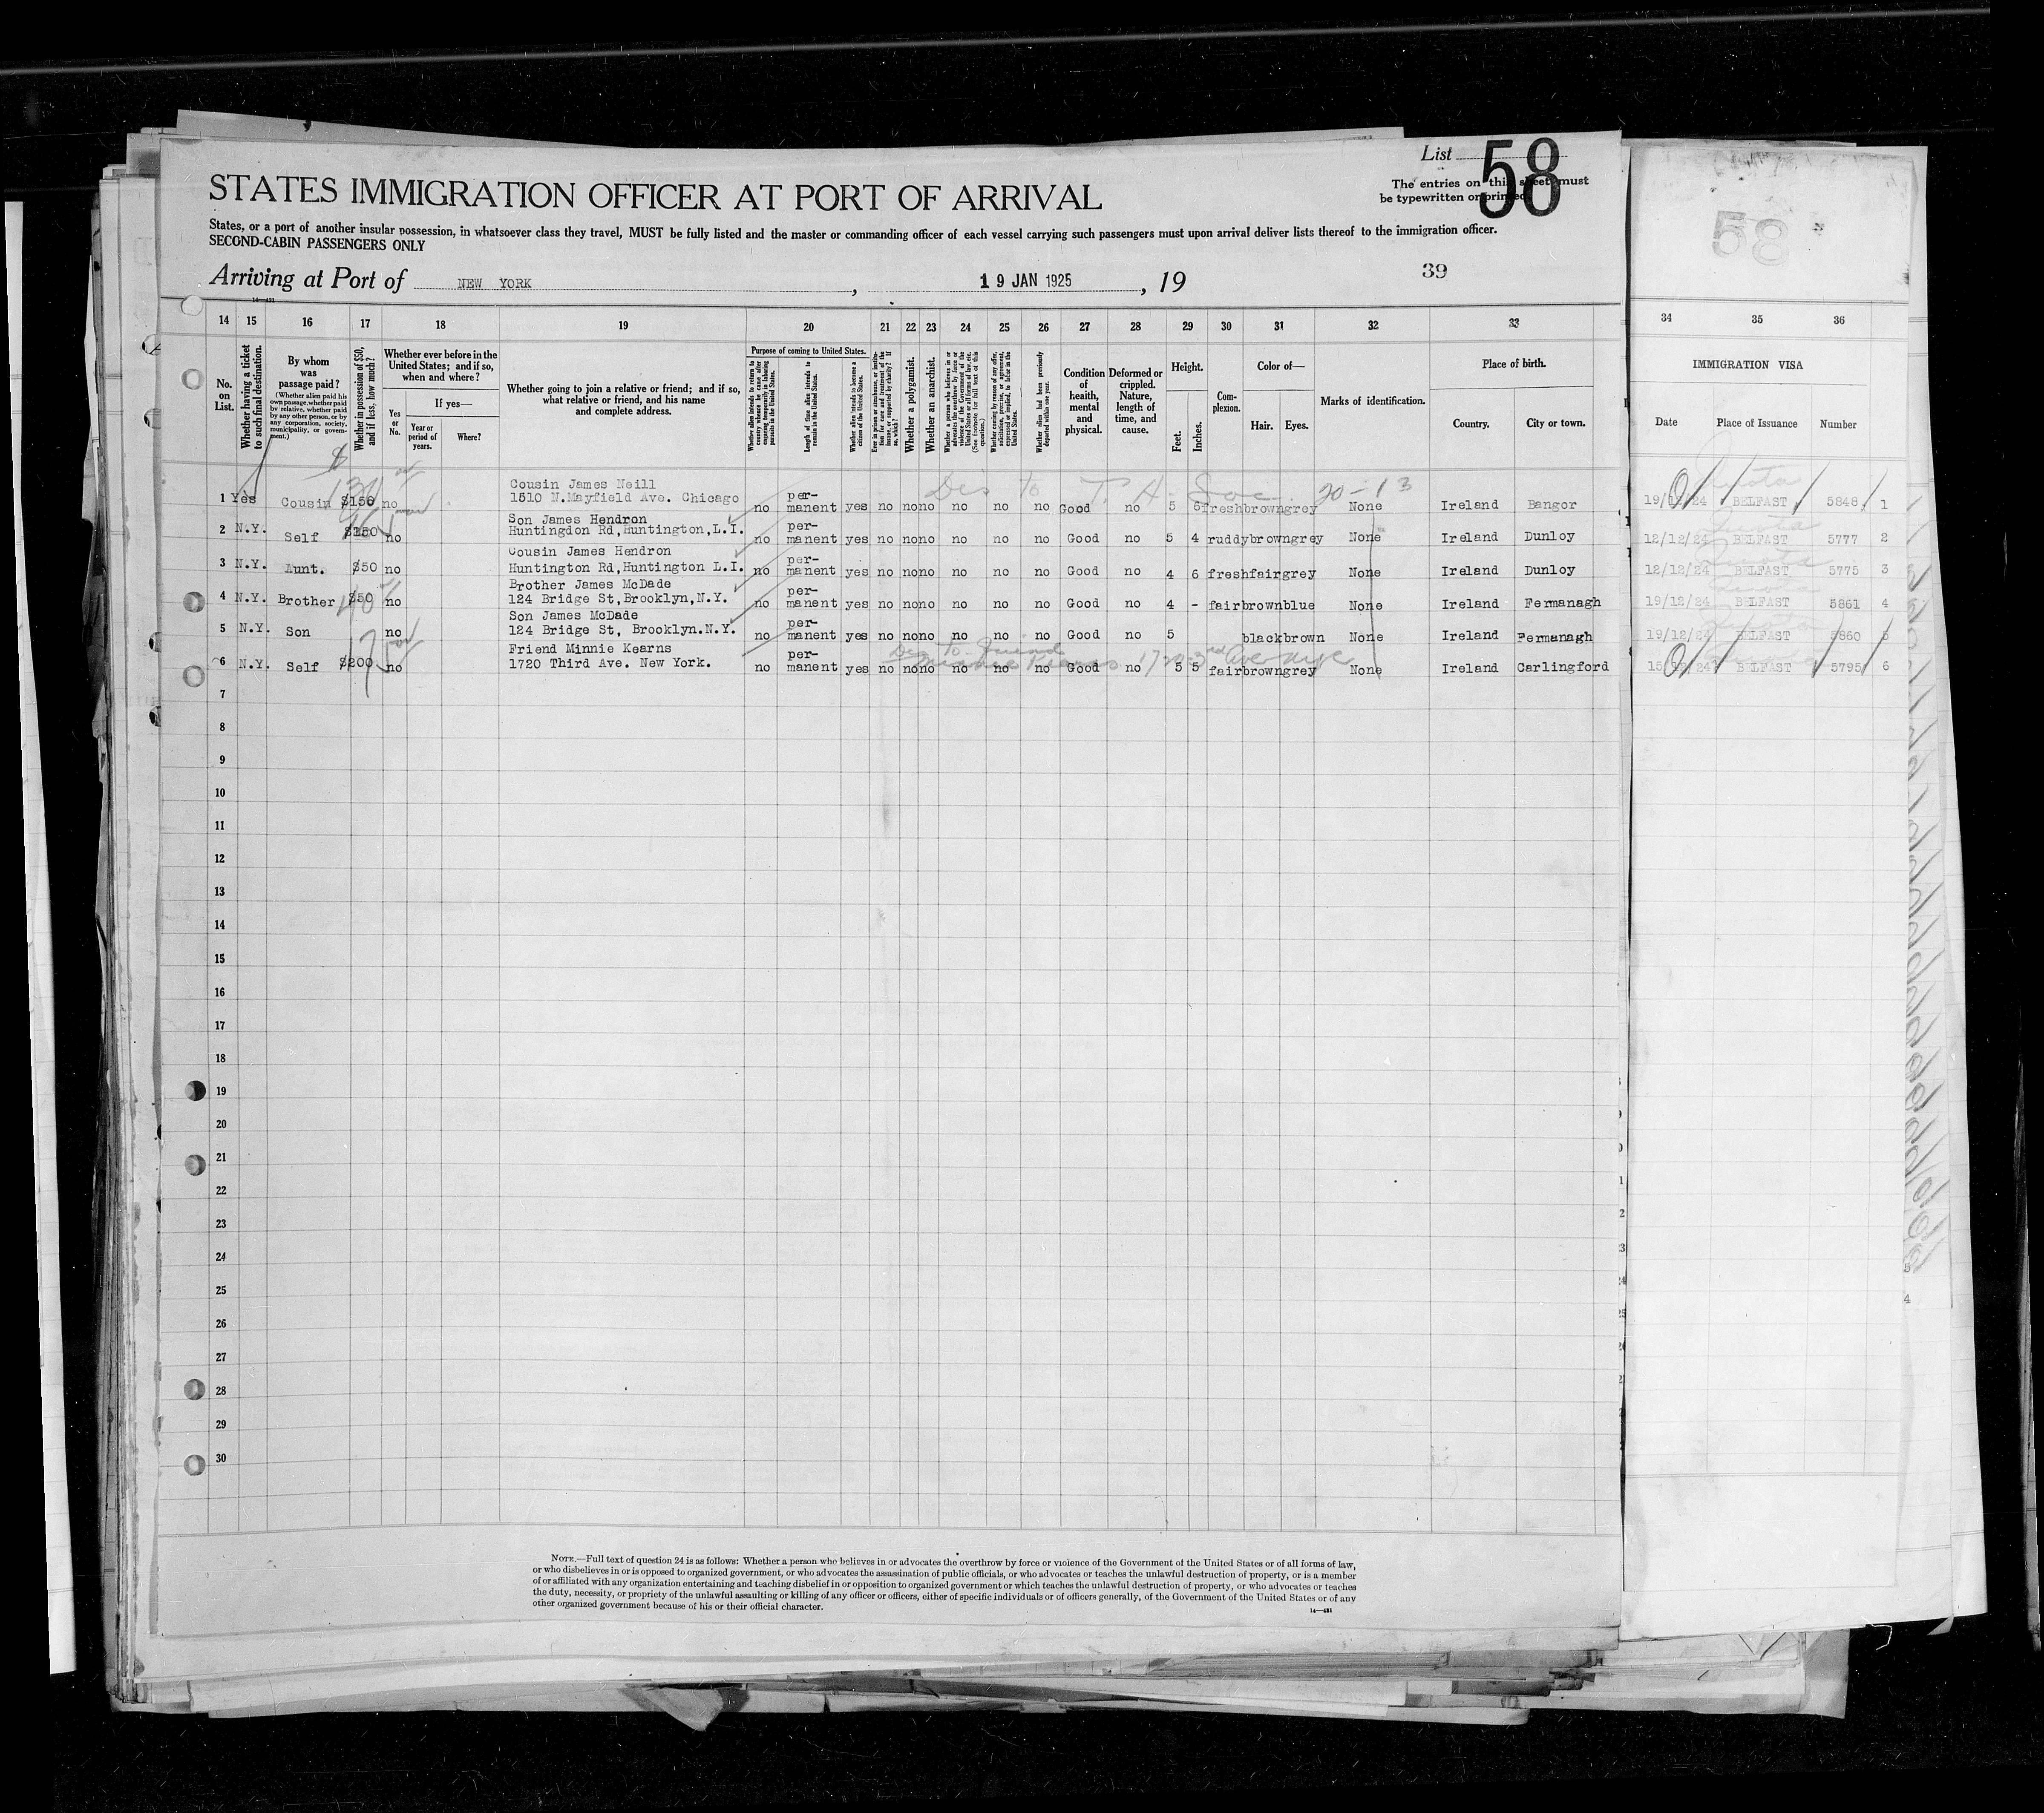 List 58
STATES IMMIGRATION OFFICER AT PORT OF ARRIVAL
The entries on this sheet must
be typewritten or printed.
States, or a port of another insular possession, in whatsoever class they travel, MUST be fully listed and the master or commanding officer of each vessel carrying such passengers must upon arrival deliver lists thereof to the immigration officer.
SECOND-CABIN PASSENGERS ONLY
58
Arriving at Port of NEW YORK, 19 JAN 1925, 19
39
14—431
14 15 16 17 18 19 20 21 22 23 24 25 26 27 28 29 30 31 32 33 34 35 36
No. on List.
Whether having a ticket to such final destination.
By whom was passage paid?
(Whether alien paid his own passage, whether paid by relative, whether paid by any other person, or by any corporation, society, municipality, or government.)
Whether in possession of $50, and if less, how much?
Whether ever before in the United States; and if so, when and where?
Yes or No.
If yes—
Year or period of years.
Where?
Whether going to join a relative or friend; and if so, what relative or friend, and his name and complete address.
Purpose of coming to United States.
Whether alien intends to return to country whence he came after engaging temporarily in laboring pursuits in the United States.
Length of time alien intends to remain in the United States.
Whether alien intends to become a citizen of the United States.
Whether a polygamist.
Whether an anarchist.
Condition of health, mental and physical.
Deformed or crippled. Nature, length of time, and cause.
Height.
Feet. Inches.
Complexion.
Color of—
Hair. Eyes.
Marks of identification.
Place of birth.
Country. City or town.
IMMIGRATION VISA
Date Place of Issuance Number
Dis to T. A. Soc. 20-13
Cousin James Neill
1 Yes Cousin $150 no 1510 N.Mayfield Ave. Chicago no per-manent yes no no no no no no Good no 5 5 fresh brown grey None Ireland Bangor 19/12/24 BELFAST 5848 1
Son James Hendron
2 N.Y. Self no Huntingdon Rd,Huntington,L.I. no per-manent yes no no no no no no Good no 5 4 ruddy brown grey None Ireland Dunloy 12/12/24 BELFAST 5777 2
Cousin James Hendron
3 N.Y. Aunt. $50 no Huntington Rd,Huntington L.I. no per-manent yes no no no no no no Good no 4 6 fresh fair grey None Ireland Dunloy 12/12/24 BELFAST 5775 3
Brother James McDade
4 N.Y. Brother $50 no 124 Bridge St,Brooklyn,N.Y. no per-manent yes no no no no no no Good no 4 - fair brown blue None Ireland Fermanagh 19/12/24 BELFAST 5861 4
Son James McDade
5 N.Y. Son no 124 Bridge St, Brooklyn.N.Y. no per-manent yes no no no no no no Good no 5 black brown None Ireland Fermanagh 19/12/24 BELFAST 5860 5
Des to Friend
Friend Minnie Kearns
Minnie Kearns 1720-3rd Avenue
6 N.Y. Self $200 no 1720 Third Ave. New York. no per-manent yes no no no no no no Good no 5 5 fair brown grey None Ireland Carlingford BELFAST 5795 6
7
8
9
10
11
12
13
14
15
16
17
18
19
20
21
22
23
24
25
26
27
28
29
30
NOTE.—Full text of question 24 is as follows: Whether a person who believes in or advocates the overthrow by force or violence of the Government of the United States or of all forms of law,
or who disbelieves in or is opposed to organized government, or who advocates the assassination of public officials, or who advocates or teaches the unlawful destruction of property, or is a member
of or affiliated with any organization entertaining and teaching disbelief in or opposition to organized government or which teaches the unlawful destruction of property, or who advocates or teaches
the duty, necessity, or propriety of the unlawful assaulting or killing of any officer or officers, either of specific individuals or of officers generally, of the Government of the United States or of any
other organized government because of his or their official character.
14—431